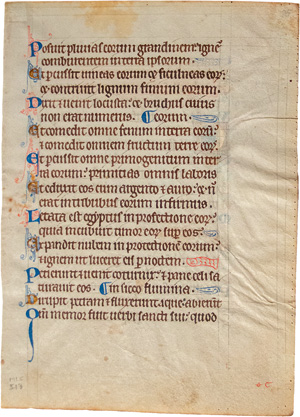 Posuit pluvias eorum grandinem: ignē
comburentem in terra ipsorum.
Et percussit vineas eorum et ficulneas eor̄:
et contrivit lignum finium eorum.
Dixit et venit locusta et bruchus cuius
non erat numerus. eorum.
Et comedit omne fenum in terra eorū:
et comedit omnem fructum terre eor̄.
Et percussit omne primogenitum in ter
ra eorum: primitias omnis laboris
Et eduxit eos cum argento et auro: et nō
erat in tribubus eorum infirmus.
Letata est egyptus in profectione eor̄:
quia incubuit timor eor̄ sup eos:
Expandit nubem in protectionē eorum:
et ignem ut luceret eis p noctem.
Petierunt et venit coturnix: et pane celi sa
turavit eos. in sicco flumina.
Dirupit petram et fluxerunt aque: abierūt
Qm̄ memor fuit verbi sancti sui: quod